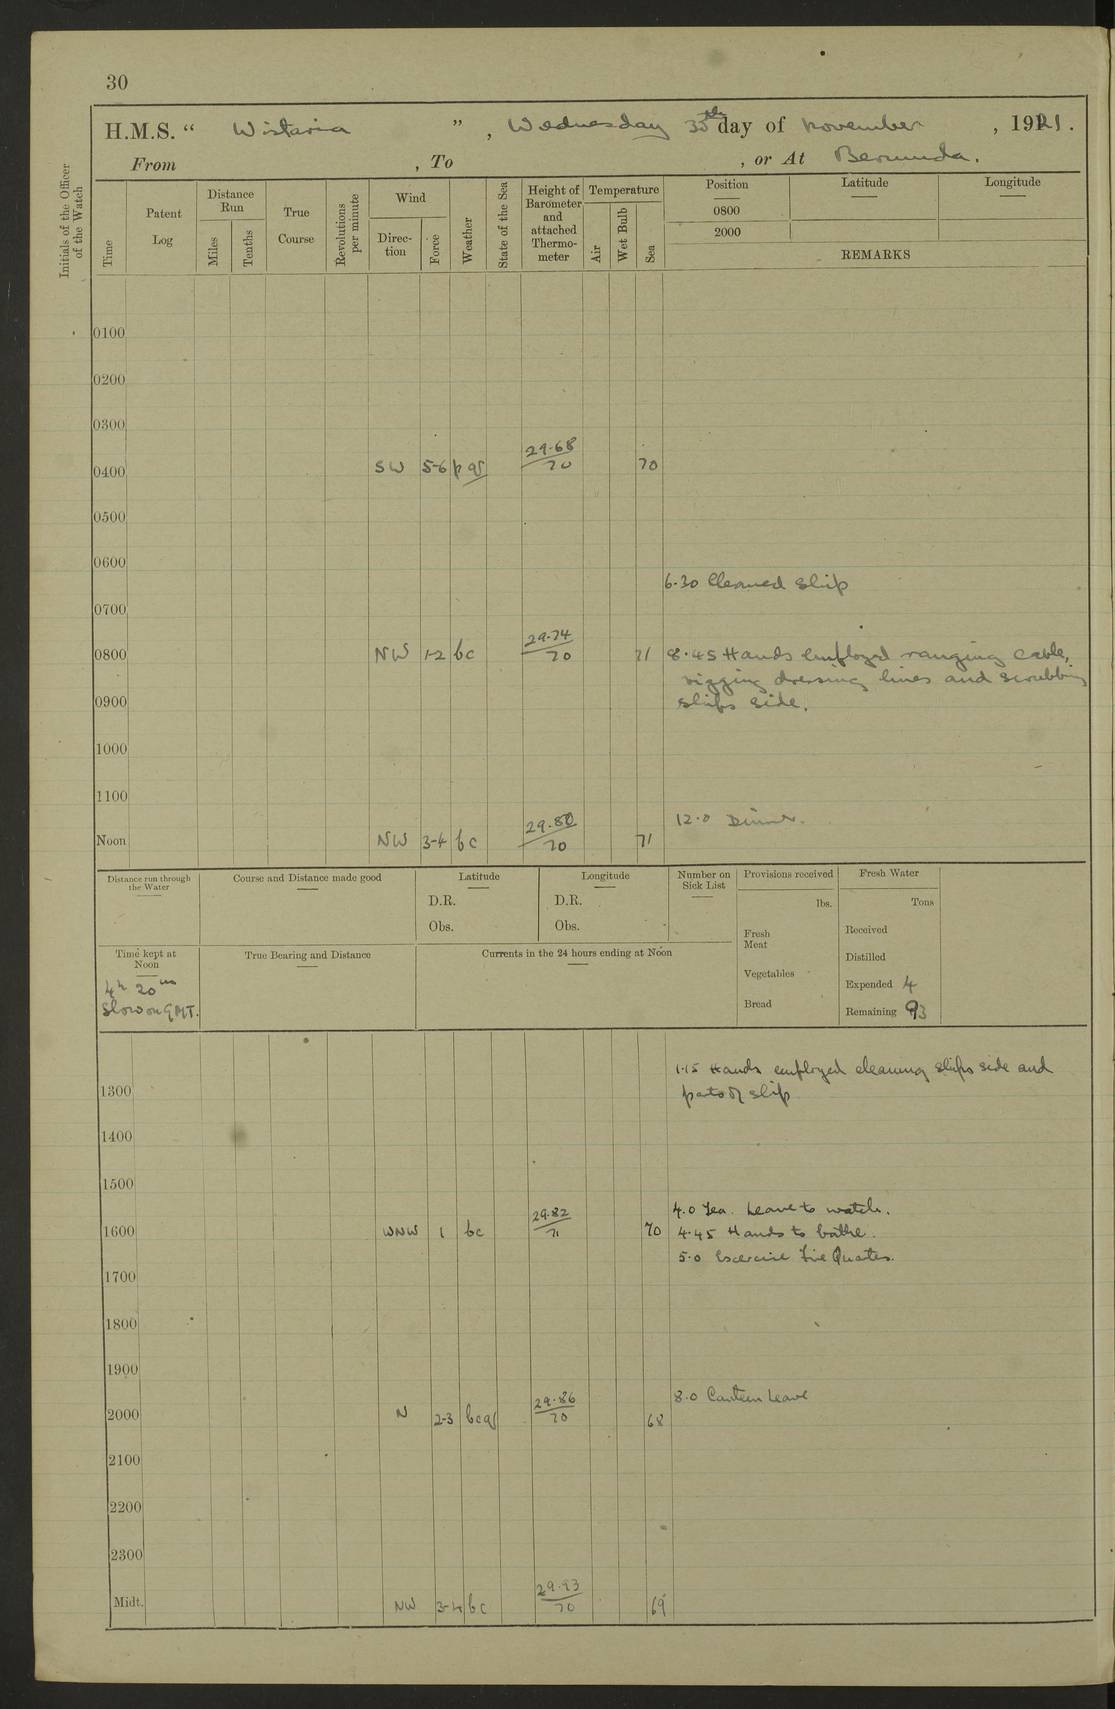 30
H.M.S. “ Wistaria ” , Wednesday 30th day of November , 1921 .
From , To , or At Bermuda.
Initials of the Officer of the Watch
Time
Patent Log
Distance Run
Miles
Tenths
True Course
Revolutions per minute
Wind
Direction
Force
Weather
State of the Sea
Height of Barometer and attached Thermometer
Temperature
Air
Wet Bulb
Sea
Position
0800
2000
Latitude
Longitude
REMARKS
0100
0200
0300
0400 SW 5-6 p q 29.68 70 70
0500
0600
6.30 Cleaned ship
0700
0800 NW 1-2 bc 29.74 70 71 8.45 Hands employed ranging cable,
rigging dressing lines and scrubbing
0900 ships side.
1000
1100
12.0 Dinner.
Noon NW 3-4 bc 29.80 70 71
Distance run through the Water
Course and Distance made good
Latitude
D.R.
Obs.
Longitude
D.R.
Obs.
Number on Sick List
Provisions received
lbs.
Fresh Meat
Vegetables
Bread
Fresh Water
Tons
Received
Distilled
Expended 4
Remaining 93
Time kept at Noon
4h 20m
Slow on GMT.
True Bearing and Distance
Currents in the 24 hours ending at Noon
1.15 Hands employed cleaning ships side and
1300 parts of ship
1400
1500
4.0 Tea. Leave to watch.
1600 WNW 1 bc 29.82 71 70 4.45 Hands to bathe.
5.0 Exercise Fire Quarters.
1700
1800
1900
8.0 Canteen Leave
2000 N 2-3 bcq 29.86 70 68
2100
2200
2300
Midt. NW 3-4 bc 29.93 70 69